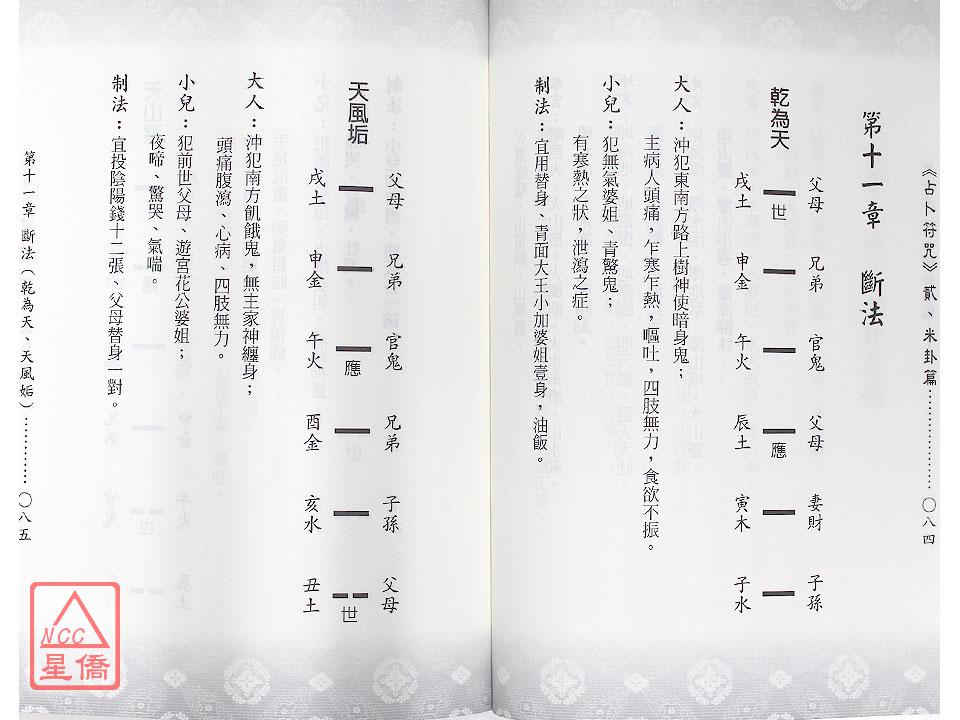 《占卜符咒》貳、米卦篇…………〇八四
第十一章 斷法
乾為天
父母 兄弟 官鬼 父母 妻財 子孫
世 應
戌土 申金 午火 辰土 寅木 子水
大人：沖犯東南方路上樹神使暗身鬼；
主病人頭痛，乍寒乍熱，嘔吐，四肢無力，食欲不振。
小兒：犯無氣婆姐、青驚鬼；
有寒熱之狀，泄瀉之症。
制法：宜用替身、青面大王小加婆姐壹身，油飯。
天風垢
父母 兄弟 官鬼 兄弟 子孫 父母
應 世
戌土 申金 午火 酉金 亥水 丑土
大人：沖犯南方飢餓鬼，無主家神纏身；
頭痛腹瀉、心病、四肢無力。
小兒：犯前世父母、遊宮花公婆姐；
夜啼、驚哭、氣喘。
制法：宜投陰陽錢十二張、父母替身一對。
第十一章 斷法（乾為天、天風姤）…………〇八五
NCC
星僑